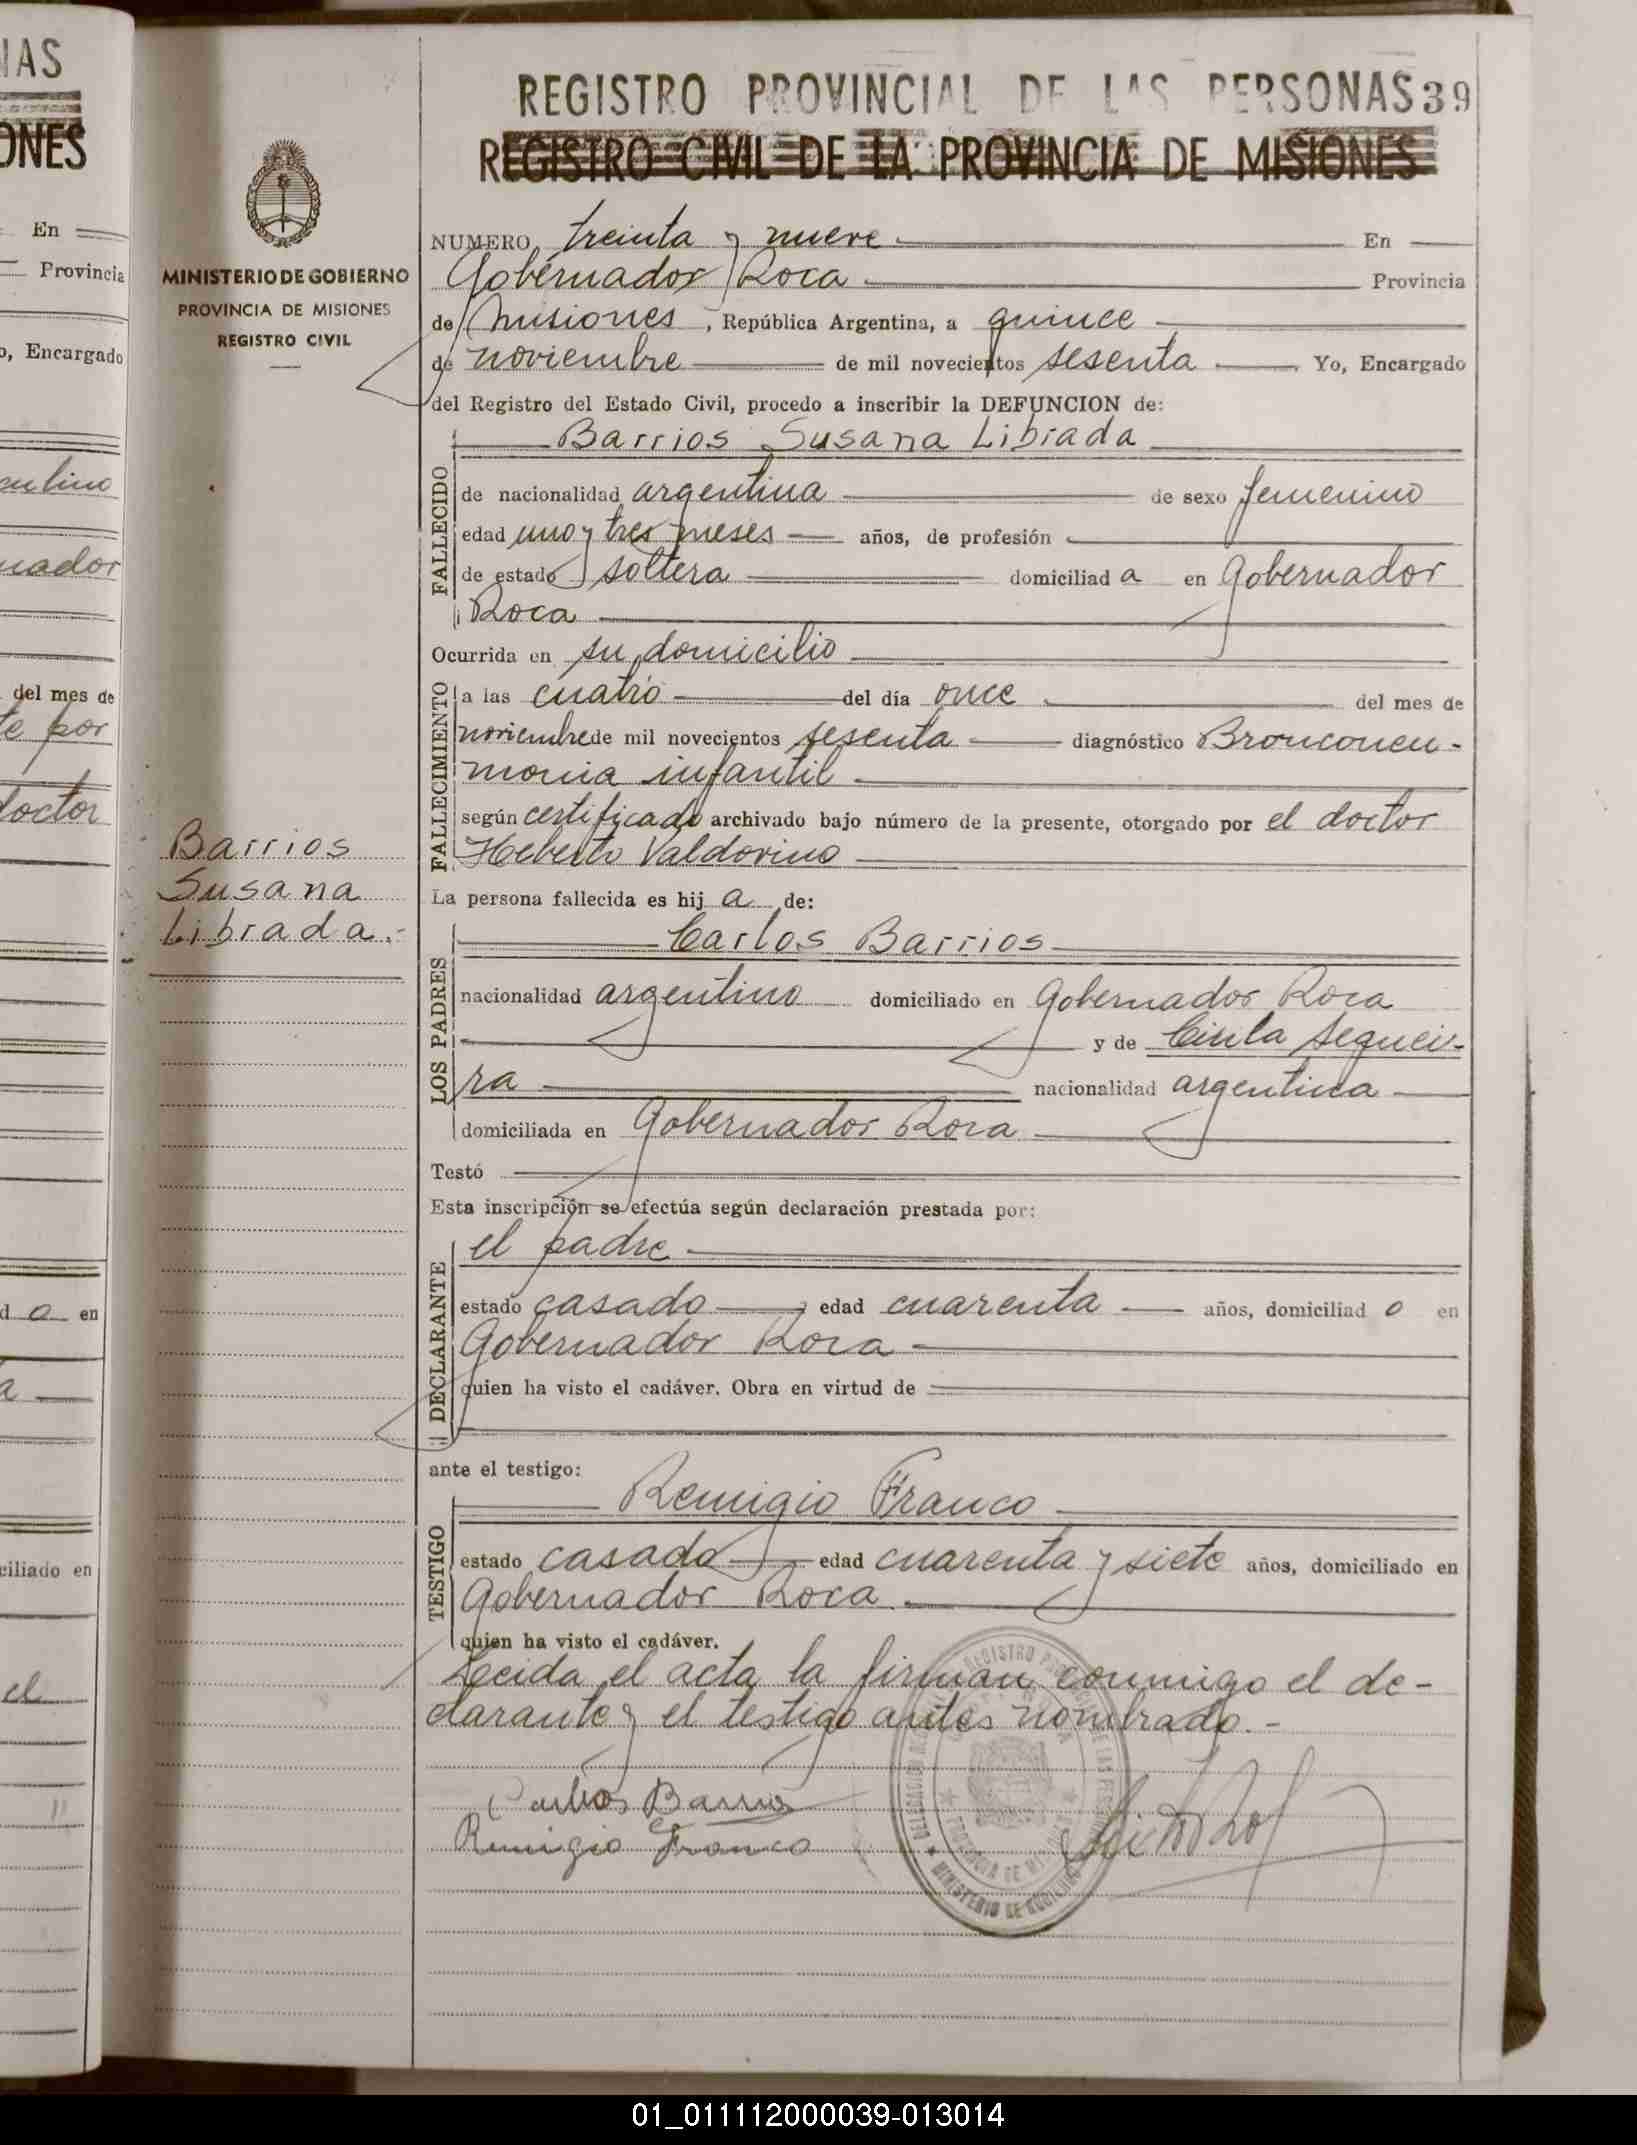 NAS
ONES
En
Provincia
o, Encargado
culino
nador
del mes de
te por
doctor
d a en
a
ciliado en
el
MINISTERIO DE GOBIERNO
PROVINCIA DE MISIONES
REGISTRO CIVIL
Barrios
Susana
Librada.-
REGISTRO PROVINCIAL DE LAS PERSONAS 39
REGISTRO CIVIL DE LA PROVINCIA DE MISIONES
NUMERO treinta y nueve En
Gobernador Roca Provincia
de Misiones, República Argentina, a quince
de noviembre de mil novecientos sesenta Yo, Encargado
del Registro del Estado Civil, procedo a inscribir la DEFUNCION de:
Barrios Susana Librada
FALLECIDO
de nacionalidad argentina de sexo femenino
edad uno y tres meses años, de profesión
de estado soltera domiciliad a en Gobernador
Roca
Ocurrida en su domicilio
FALLECIMIENTO
a las cuatro del día once del mes de
noviembre de mil novecientos sesenta diagnóstico Bronconeu-
monia infantil
según certificado archivado bajo número de la presente, otorgado por el doctor
Heberto Valdovino
La persona fallecida es hij a de:
LOS PADRES
Carlos Barrios
nacionalidad argentino domiciliado en Gobernador Roca
y de Cinla Sequei-
ra nacionalidad argentina
domiciliada en Gobernador Roca
Testó
Esta inscripción se efectúa según declaración prestada por:
DECLARANTE
el padre
estado casado edad cuarenta años, domiciliad o en
Gobernador Roca
quien ha visto el cadáver. Obra en virtud de
ante el testigo:
TESTIGO
Remigio Franco
estado casado edad cuarenta y siete años, domiciliado en
Gobernador Roca
quien ha visto el cadáver.
Leida el acta la firman conmigo el de-
clarante y el testigo antes nombrado.-
Carlos Barrios
Remigio Franco
MINISTERIO DE GOBIERNO
PROVINCIA DE MISIONES
01_011112000039-013014